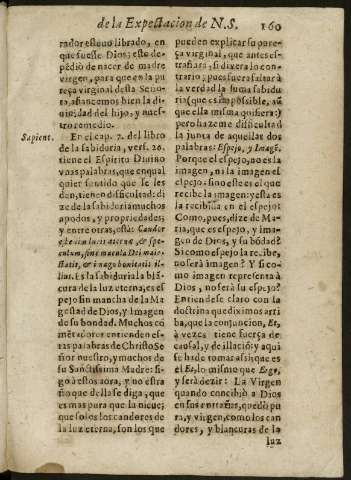 de la Expectacion de N.S. 160
rador estuuo librado, en
que fuesse Dios; esto de-
pēdió de nacer de madre
virgen, para que en la pu
reça virginal desta Seño-
ra, afiancemos bien la di-
uinidad del hijo, y nues-
tro remedio.
Sapient.
En el cap. 7. del libro
de la sabiduria, vers. 26.
tiene el Espiritu Diuino
vnas palabras, que en qual
quier sentido que se les
den, tienen dificultad: di
ze de la sabiduria muchos
apodos, y propriedades;
y entre otras, está: Candor
est enim lucis æternæ, & spe-
culum, sine macula Dei maie-
statis, & imago bonitatis il-
lius. Es la sabiduria la blā-
cura de la luz eterna, es es-
pejo sin mancha de la Ma
gestad de Dios, y Imagen
de su bondad. Muchos co
mētadores entienden es-
tas palabras de Christo Se
ñor nuestro, y muchos de
su Sanctissima Madre: si-
go à estos aora, y no estra
ño que della se diga, que
es mas pura que la nieue;
que solos los candores de
la luz eterna, son los que
pueden explicar su pure-
ça virginal, que antes es-
trañara, si dixera lo con-
trario; pues fuera faltar à
la verdad la suma sabidu
ria (que es impossible, aũ
que ella misma quisiera:)
pero hazeme difficultad
la junta de aquellas dos
palabras: Espejo, y Imagē.
Porque el espejo, no es la
imagen, ni la imagen el
espejo: sino este es el que
recibe la imagen: y esta es
la recibida en el espejo:
Como, pues, dize de Ma-
ria, que es espejo, y ima-
gen de Dios, y su bōdad?
Si como espejo la recibe,
no será imagen? Y si co-
mo imagen representa à
Dios, no será su espejo?
Entiendese claro con la
doctrina que diximos arri
ba, que la conjuncion, Et,
à vezes tiene fuerça de
causal, y de illació: y aqui
se ha de tomar assi; que es
el Et, lo mismo que Ergo,
y será dezir: La Virgen
quando concibiò à Dios
en sus entrañas, quedò pu
ra, y virgen, como los can
dores, y blancuras de la
luz